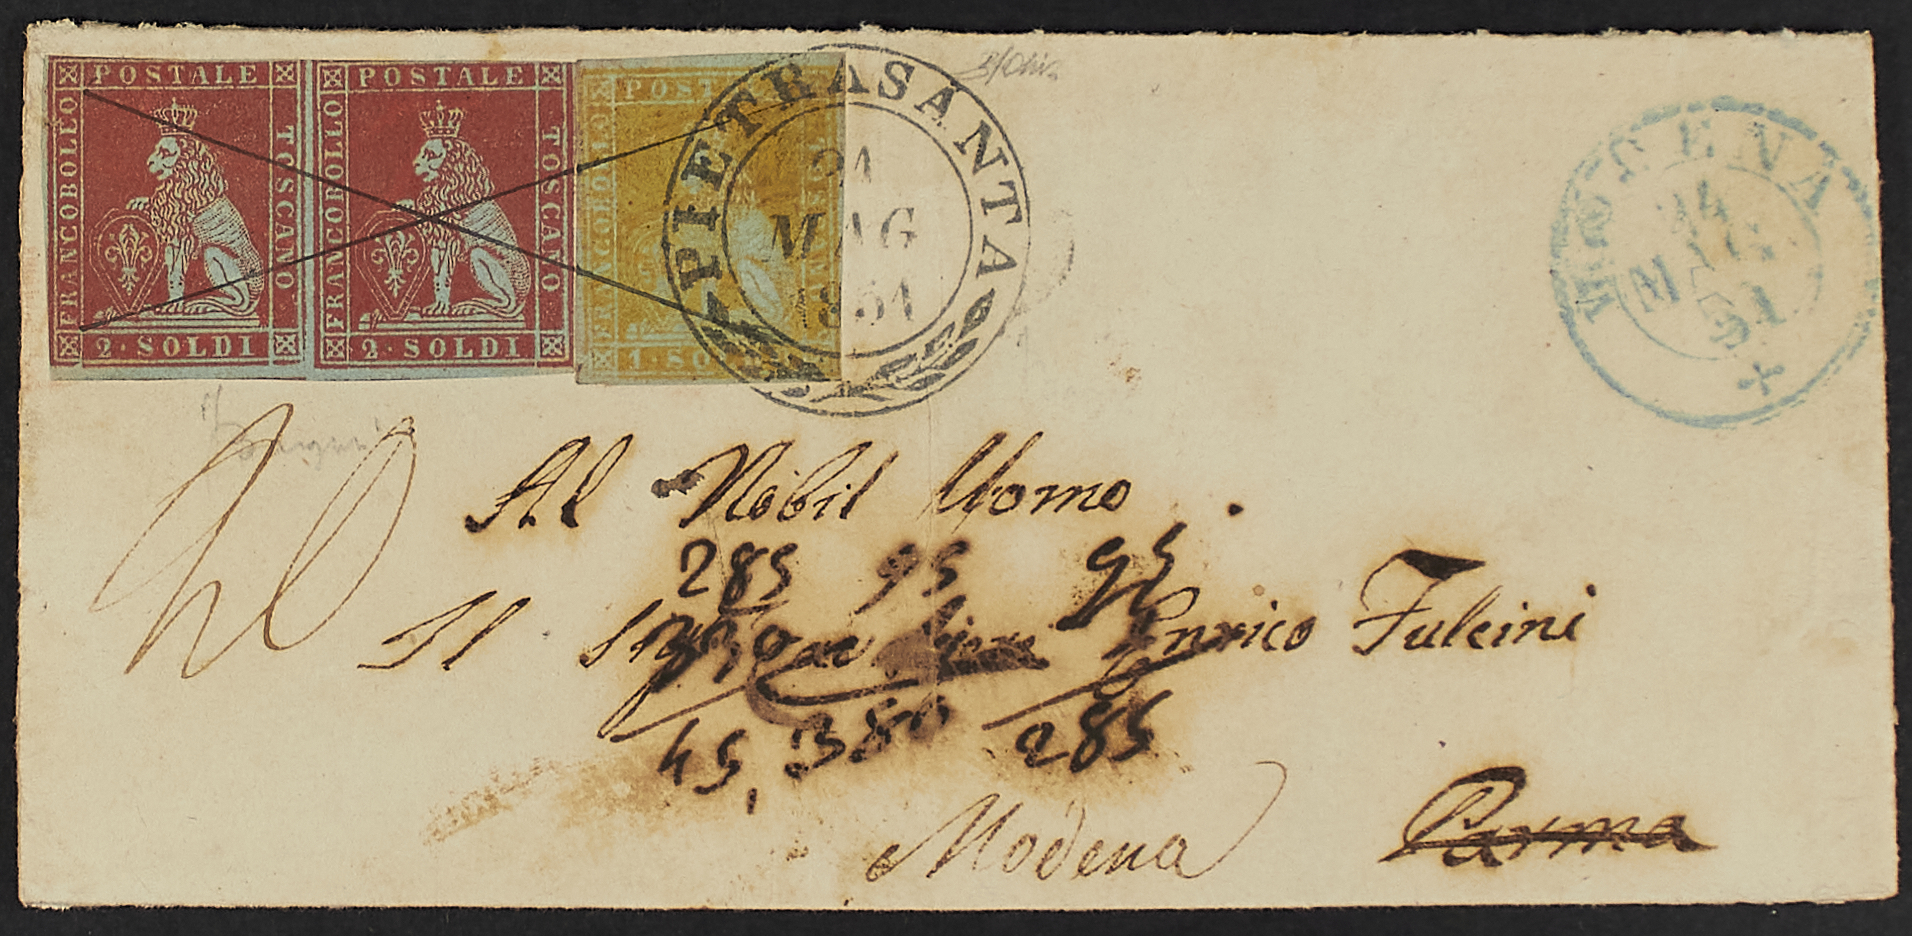 POSTALE
FRANCOBOLLO
TOSCANO
2·SOLDI
POSTALE
FRANCOBOLLO
TOSCANO
2·SOLDI
POST
FRANCOBOLLO
TOSCANO
1·SO
PIETRASANTA
21
MAG
1851
MODENA
24
MAG
51
20
Al Nobil Uomo
285 95 95
Il Enrico Fulcini
45, 380 285
Modena Parma